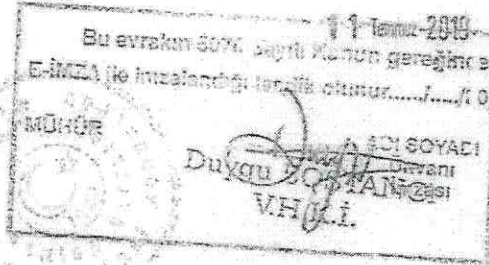 11 Temmuz 2019
Bu evrakın 5070 sayılı Kanun gereğince
E-İMZA ile imzalandığı tasdik olunur...../..../
MÜHÜR
ADI SOYADI
Duygu
Ünvanı
İmzası
V.H.K.İ.